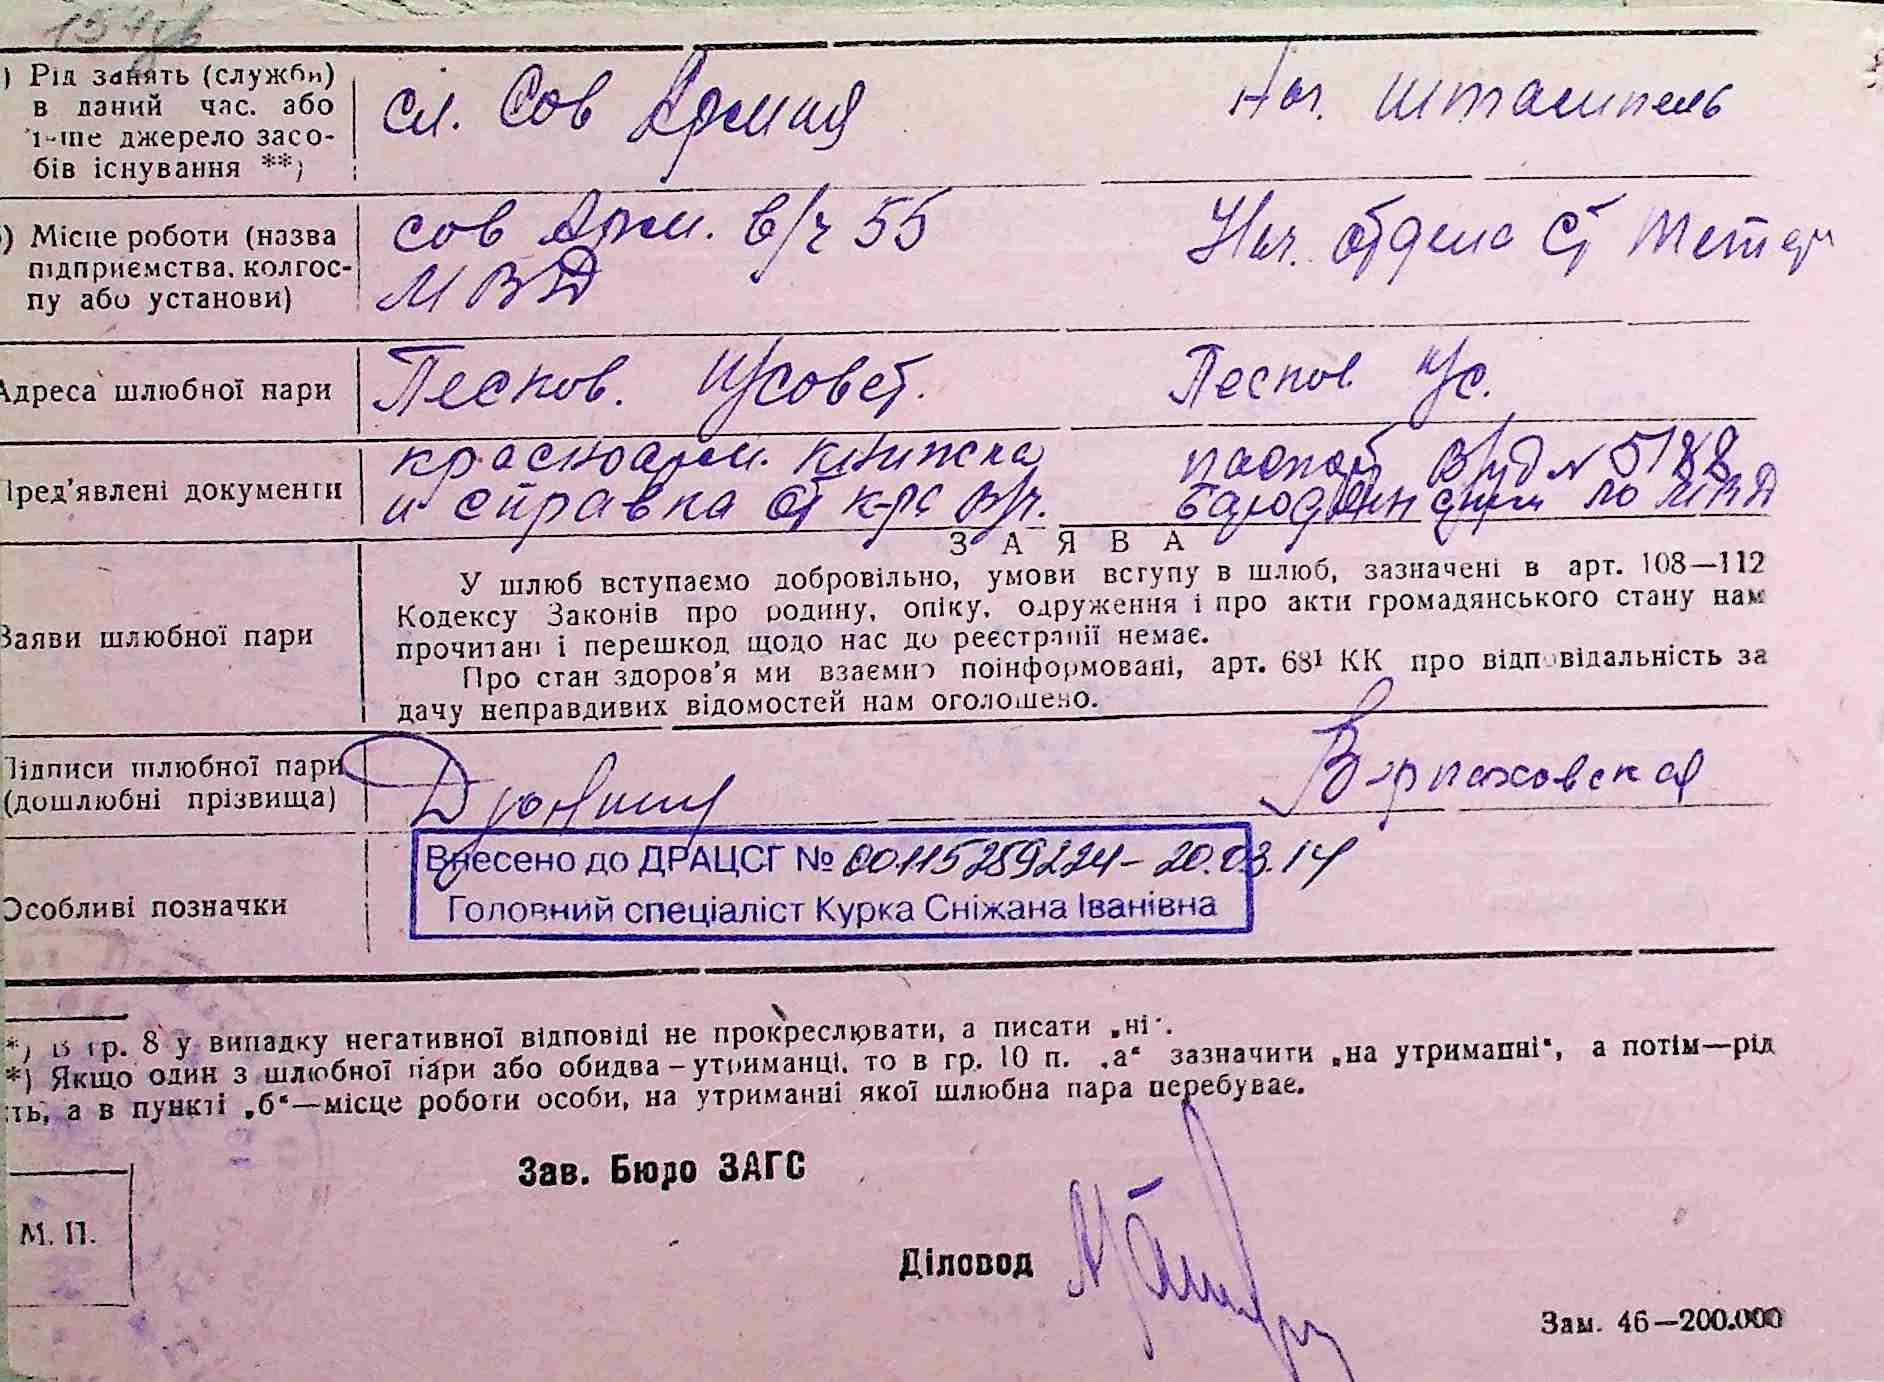 ) Рід занять (служби) в даний час. або інше джерело засобів існування **)
сл. Сов Армия
Нач.
) Місце роботи (назва підприємства, колгоспу або установи)
сов Арм. в/ч 55
МВД
Нач. отдела
Адреса шлюбної пари
Песков. п/совет.
Песков п/с.
Пред'явлені документи
красноарм. книжка
и справка от к-ра в/ч.
паспорт № 5188
по МВД
ЗАЯВА
У шлюб вступаємо добровільно, умови вступу в шлюб, зазначені в арт. 108—112
Кодексу Законів про родину, опіку, одруження і про акти громадянського стану нам
прочитані і перешкод щодо нас до реєстрації немає.
Про стан здоров'я ми взаємно поінформовані, арт. 68¹ КК про відповідальність за
дачу неправдивих відомостей нам оголошено.
Заяви шлюбної пари
Підписи шлюбної пари
(дошлюбні прізвища)
Внесено до ДРАЦСГ № 00115289224 – 20.03.14
Головний спеціаліст Курка Сніжана Іванівна
Особливі позначки
*) В гр. 8 у випадку негативної відповіді не прокреслювати, а писати „ні".
*) Якщо один з шлюбної пари або обидва – утриманці, то в гр. 10 п. „а" зазначити „на утриманні", а потім—рід
ть, а в пункті „б"—місце роботи особи, на утриманні якої шлюбна пара перебуває.
Зав. Бюро ЗАГС
М. П.
Діловод
Зам. 46—200.000